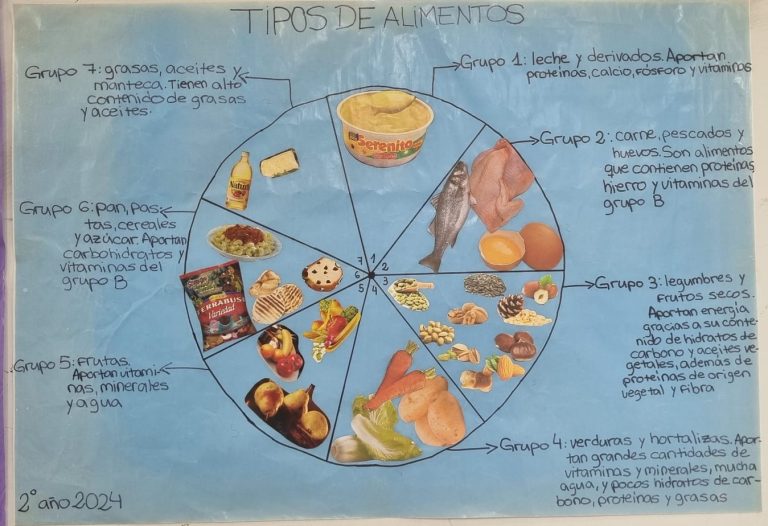 TIPOS DE ALIMENTOS
Grupo 1: leche y derivados. Aportan
proteinas, calcio, fósforo y vitaminas
Grupo 2: carne, pescados y
huevos. Son alimentos
que contienen proteinas,
hierro y vitaminas del
grupo B
Grupo 3: legumbres y
frutos secos.
Aportan energía
gracias a su conte-
nido de hidratos de
carbono y aceites ve-
getales, además de
proteinas de origen
vegetal y fibra
Grupo 4: verduras y hortalizas. Apor-
tan grandes cantidades de
vitaminas y minerales, mucha
agua, y pocos hidratos de car-
bono, proteinas y grasas
Grupo 5: frutas.
Aportan vitami-
nas, minerales
y agua
Grupo 6: pan, pas-
tas, cereales
y azúcar. Aportan
carbohidratos y
vitaminas del
grupo B
Grupo 7: grasas, aceites y
manteca. Tienen alto
contenido de grasas
y aceites.
Serenito
Natura
Variedad
7 1
6 2
5 4 3
2° año 2024